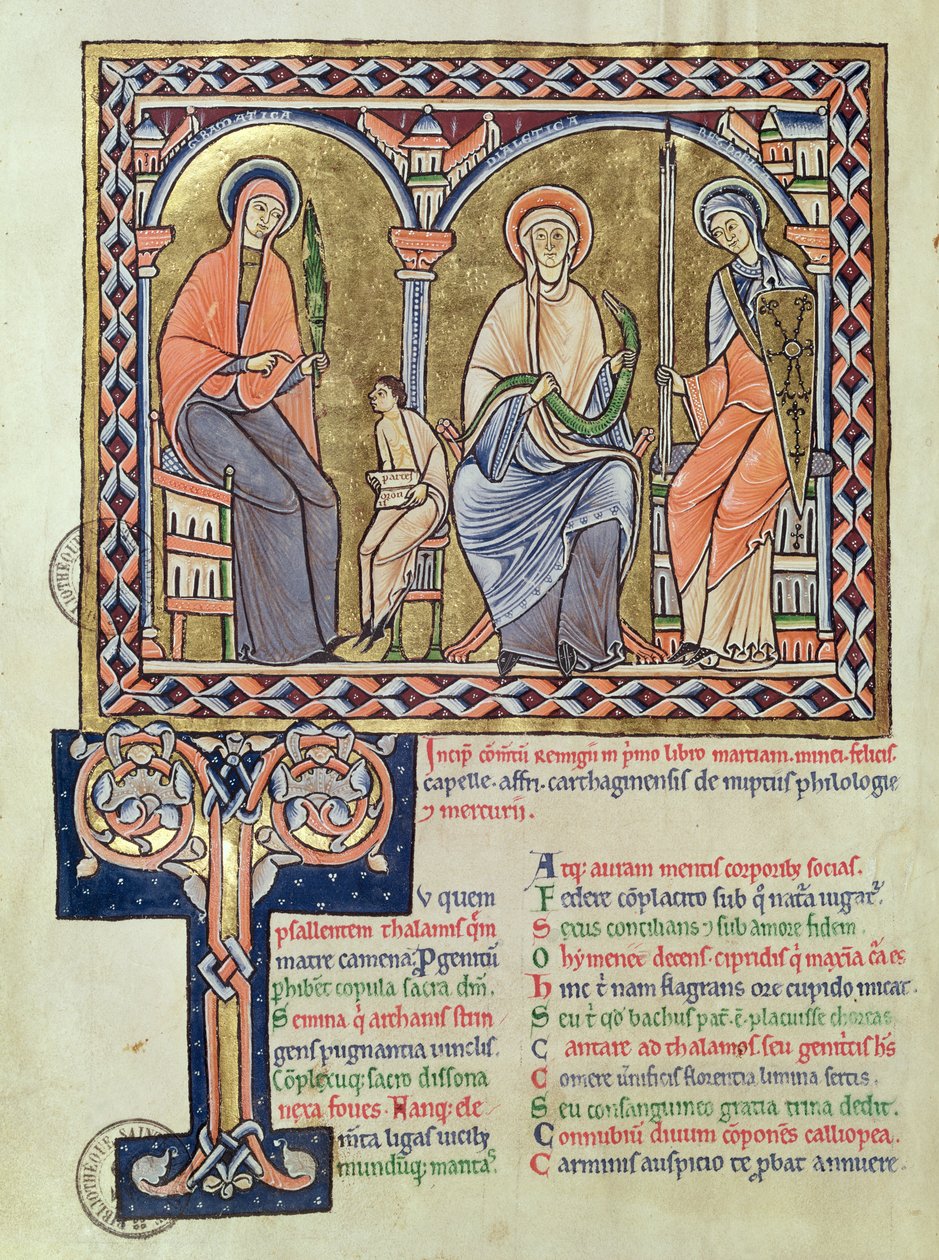 GRAMATICA
DIALETICA
RETHORICA
partes
oron
BIBLIOTHÈQUE SAIN
BIBLIOTHÈQUE SAIN
Incip̄ cōm̄tū Remigii in p̄mo libro martiani. minei. felicis
capelle. affri. carthaginensis de nuptiis philologie
⁊ mercurii.
Tu quem
psallentem thalamis q̄m
matre camena. Pgenitū
phibēt copula sacra dm̄.
Semina q̄ archanis strin
gens pugnantia vinclis.
Cōplexuq; sacro dissona
nexa foves. Namq; ele
m̄ta ligas vicib;
mundūq; maritas.
Atq; auram mentis corporib; socias.
Federe cōplacito sub q̄ nat̄a iugat᷑.
Sexus concilians ⁊ sub amore fidem.
O hymeneē decens. cipridis q̄ maxīa c̄a es
hinc t̄ nam flagrans ore cupido micat.
Seu t̄ qd̄ bachus pat̄. ē. placuisse choreas
Cantare ad thalamos. seu genit̄cis hs̄
Comere v̄nificis florentia limina sertis.
Seu consanguineo gratia trina dedit.
Connubiū divum cōponēs calliopea.
Carminis auspicio te pbat annuere.